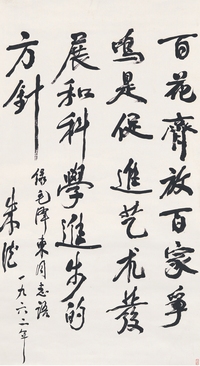 百花齊放百家爭
鳴是促進艺术發
展和科學進步的
方針
錄毛澤東同志語
朱德
一九六二年